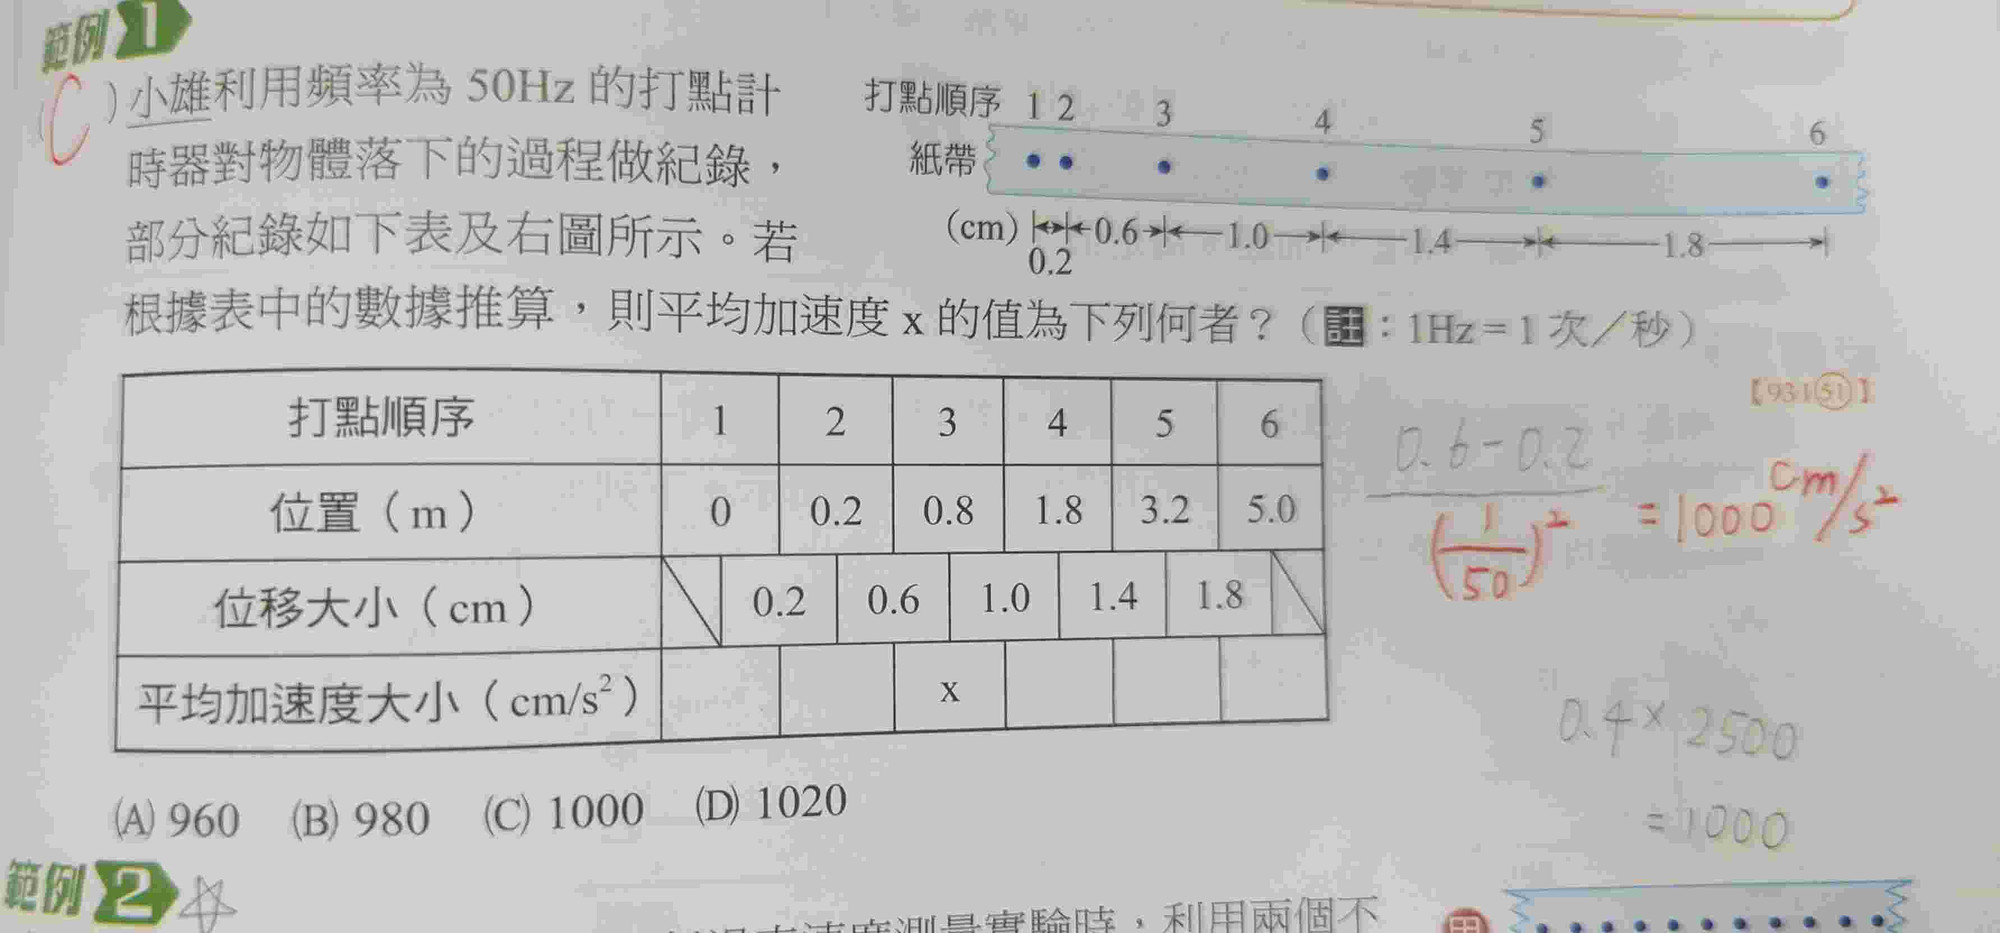 範例 1
C
)小雄利用頻率為 50Hz 的打點計
時器對物體落下的過程做紀錄，
部分紀錄如下表及右圖所示。若
根據表中的數據推算，則平均加速度 x 的值為下列何者？（註：1Hz = 1 次／秒）
【93 I 51】
打點順序 1 2 3 4 5 6
紙帶
(cm) 0.6 1.0 1.4 1.8
0.2
打點順序 1 2 3 4 5 6
位置（m） 0 0.2 0.8 1.8 3.2 5.0
位移大小（cm） 0.2 0.6 1.0 1.4 1.8
平均加速度大小（cm/s²） x
0.6-0.2
(1/50)² = 1000 cm/s²
0.4×2500
=1000
(A) 960 (B) 980 (C) 1000 (D) 1020
範例 2
速度測量實驗時，利用兩個不
甲